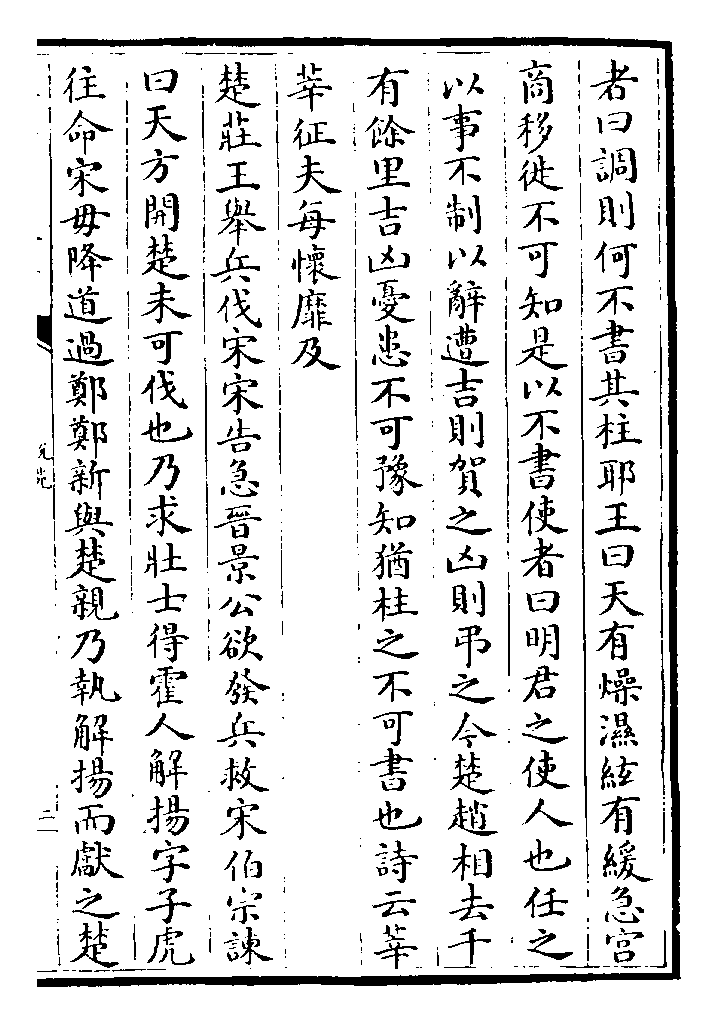 者曰調則何不書其柱耶王曰天有燥濕絃有緩急宫
商移徙不可知是以不書使者曰明君之使人也任之
以事不制以辭遭吉則賀之凶則弔之今楚趙相去千
有餘里吉凶憂患不可豫知猶柱之不可書也詩云莘
莘征夫毎懷靡及
楚莊王舉兵伐宋宋告急晉景公欲發兵救宋伯宗諫
曰天方開楚未可伐也乃求壯士得霍人解揚字子虎
往命宋毋降道過鄭鄭新與楚親乃執解揚而獻之楚